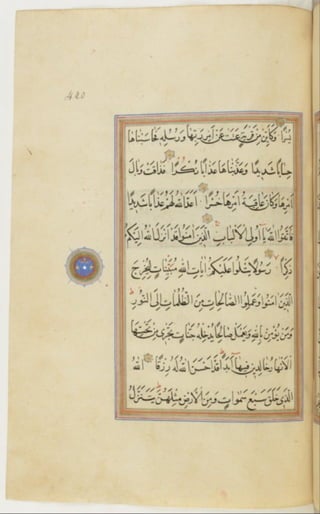 420
يسرا وكاين من قرية عتت عن امر ربها ورسله فحاسبناها
حسابا شديدا وعذبناها عذابا نكرا فذاقت وبال
امرها وكان عاقبة امرها خسرا اعد الله لهم عذابا شديدا
فاتقوا الله يا اولي الالباب الذين امنوا قد انزل الله اليكم
ذكرا رسولا يتلوا عليكم ايات الله مبينات ليخرج
الذين امنوا وعملوا الصالحات من الظلمات الى النور
ومن يؤمن بالله ويعمل صالحا يدخله جنات تجري من تحتها
الانهار خالدين فيها ابدا قد احسن الله له رزقا الله
الذي خلق سبع سموات ومن الارض مثلهن يتنزل